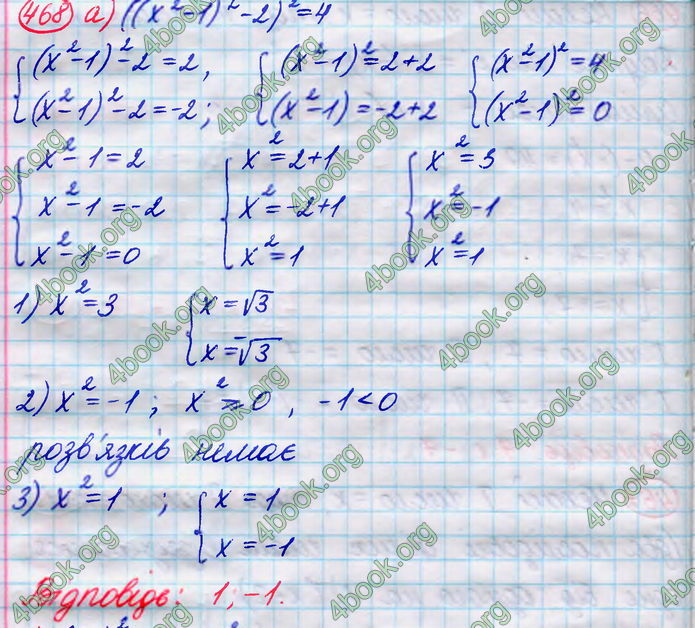 468 а) ((x²-1)²-2)²=4
{ (x²-1)²-2=2, { (x²-1)²=2+2 { (x²-1)²=4
(x²-1)²-2=-2; (x²-1)=-2+2 (x²-1)²=0
{ x²-1=2 { x²=2+1 { x²=3
x²-1=-2 x²=-2+1 x²=-1
x²-1=0 x²=1 x²=1
1) x²=3 { x=√3
x=-√3
2) x²=-1; x²≥0, -1<0
розв'язків немає
3) x²=1; { x=1
x=-1
Відповідь: 1; -1.
4book.org